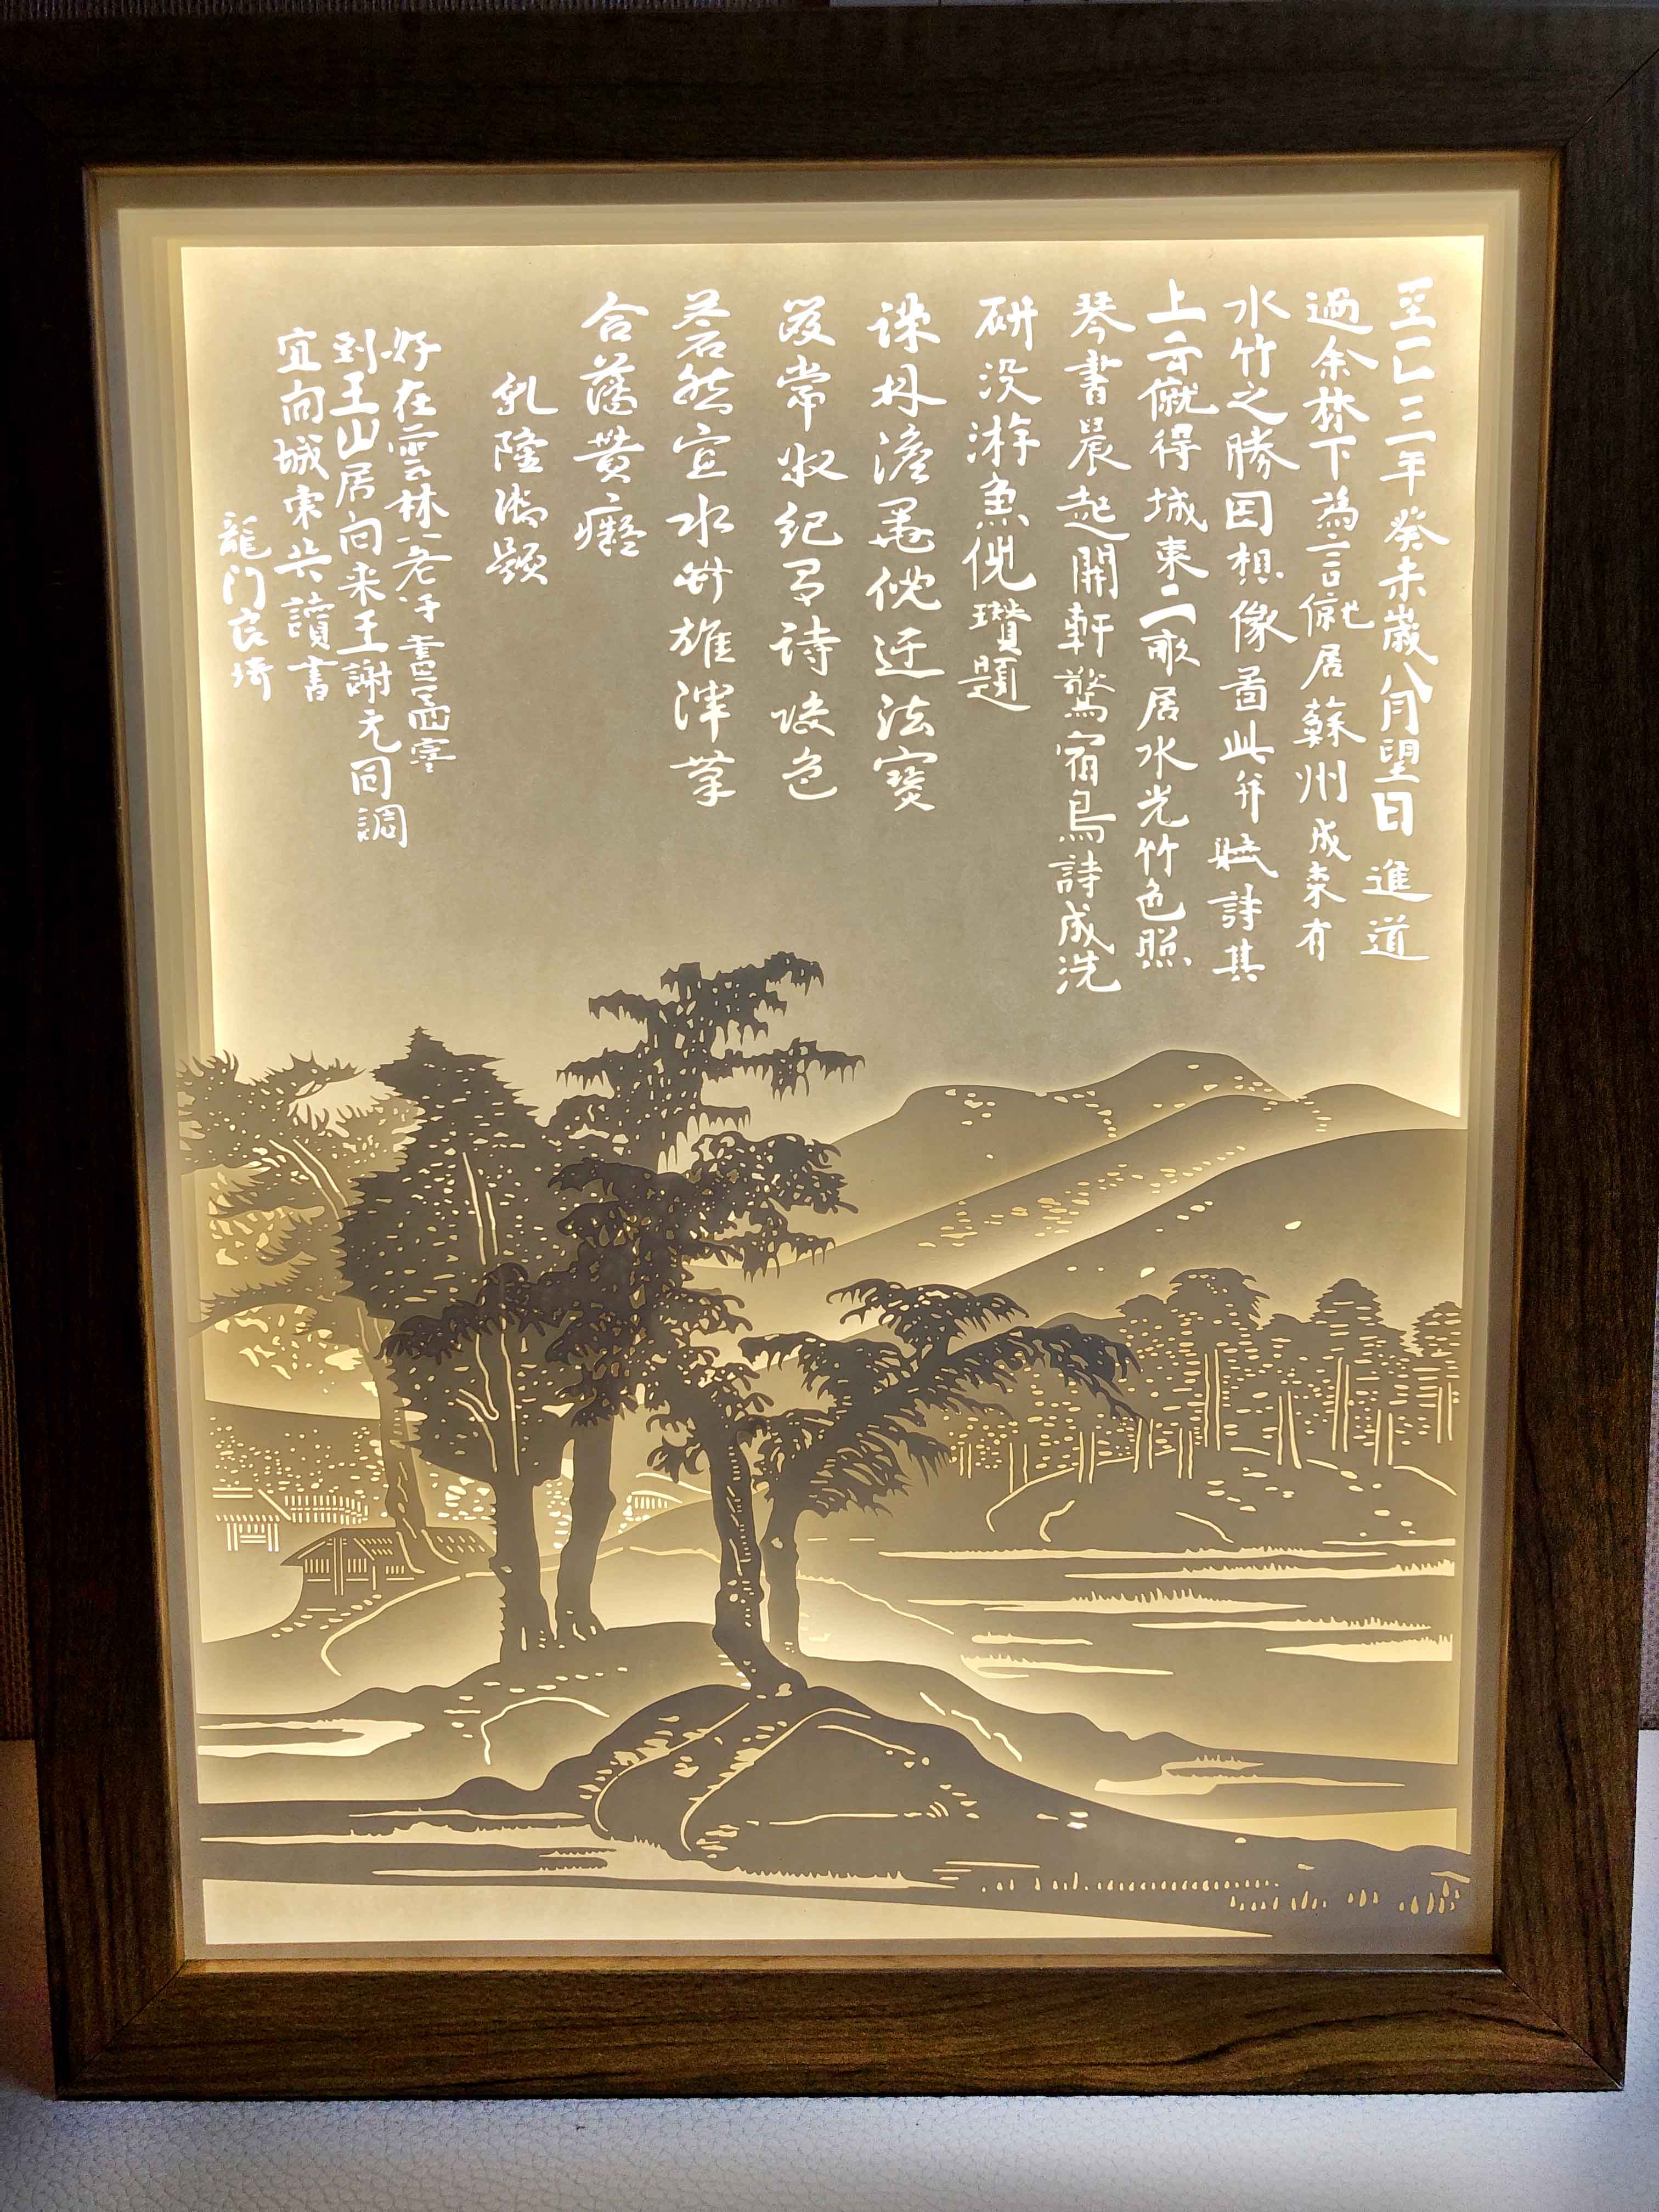 至正三年癸未歲八月望日進道
過余林下為言僦居蘇州成東有
水竹之勝因想像啚此并賦詩其
上云僦得城東二畝居水光竹色照
琴書晨起開軒驚宿鳥詩成洗
研没游魚倪瓚題
澹墨倪迂法寶
笈常收紀詩色
蒼然宜水竹雄渾筆
合黄癡
乾隆御題
好在雲林一老書啚寄
到王山居向来王謝元同調
宜向城東共讀書
龍门良琦